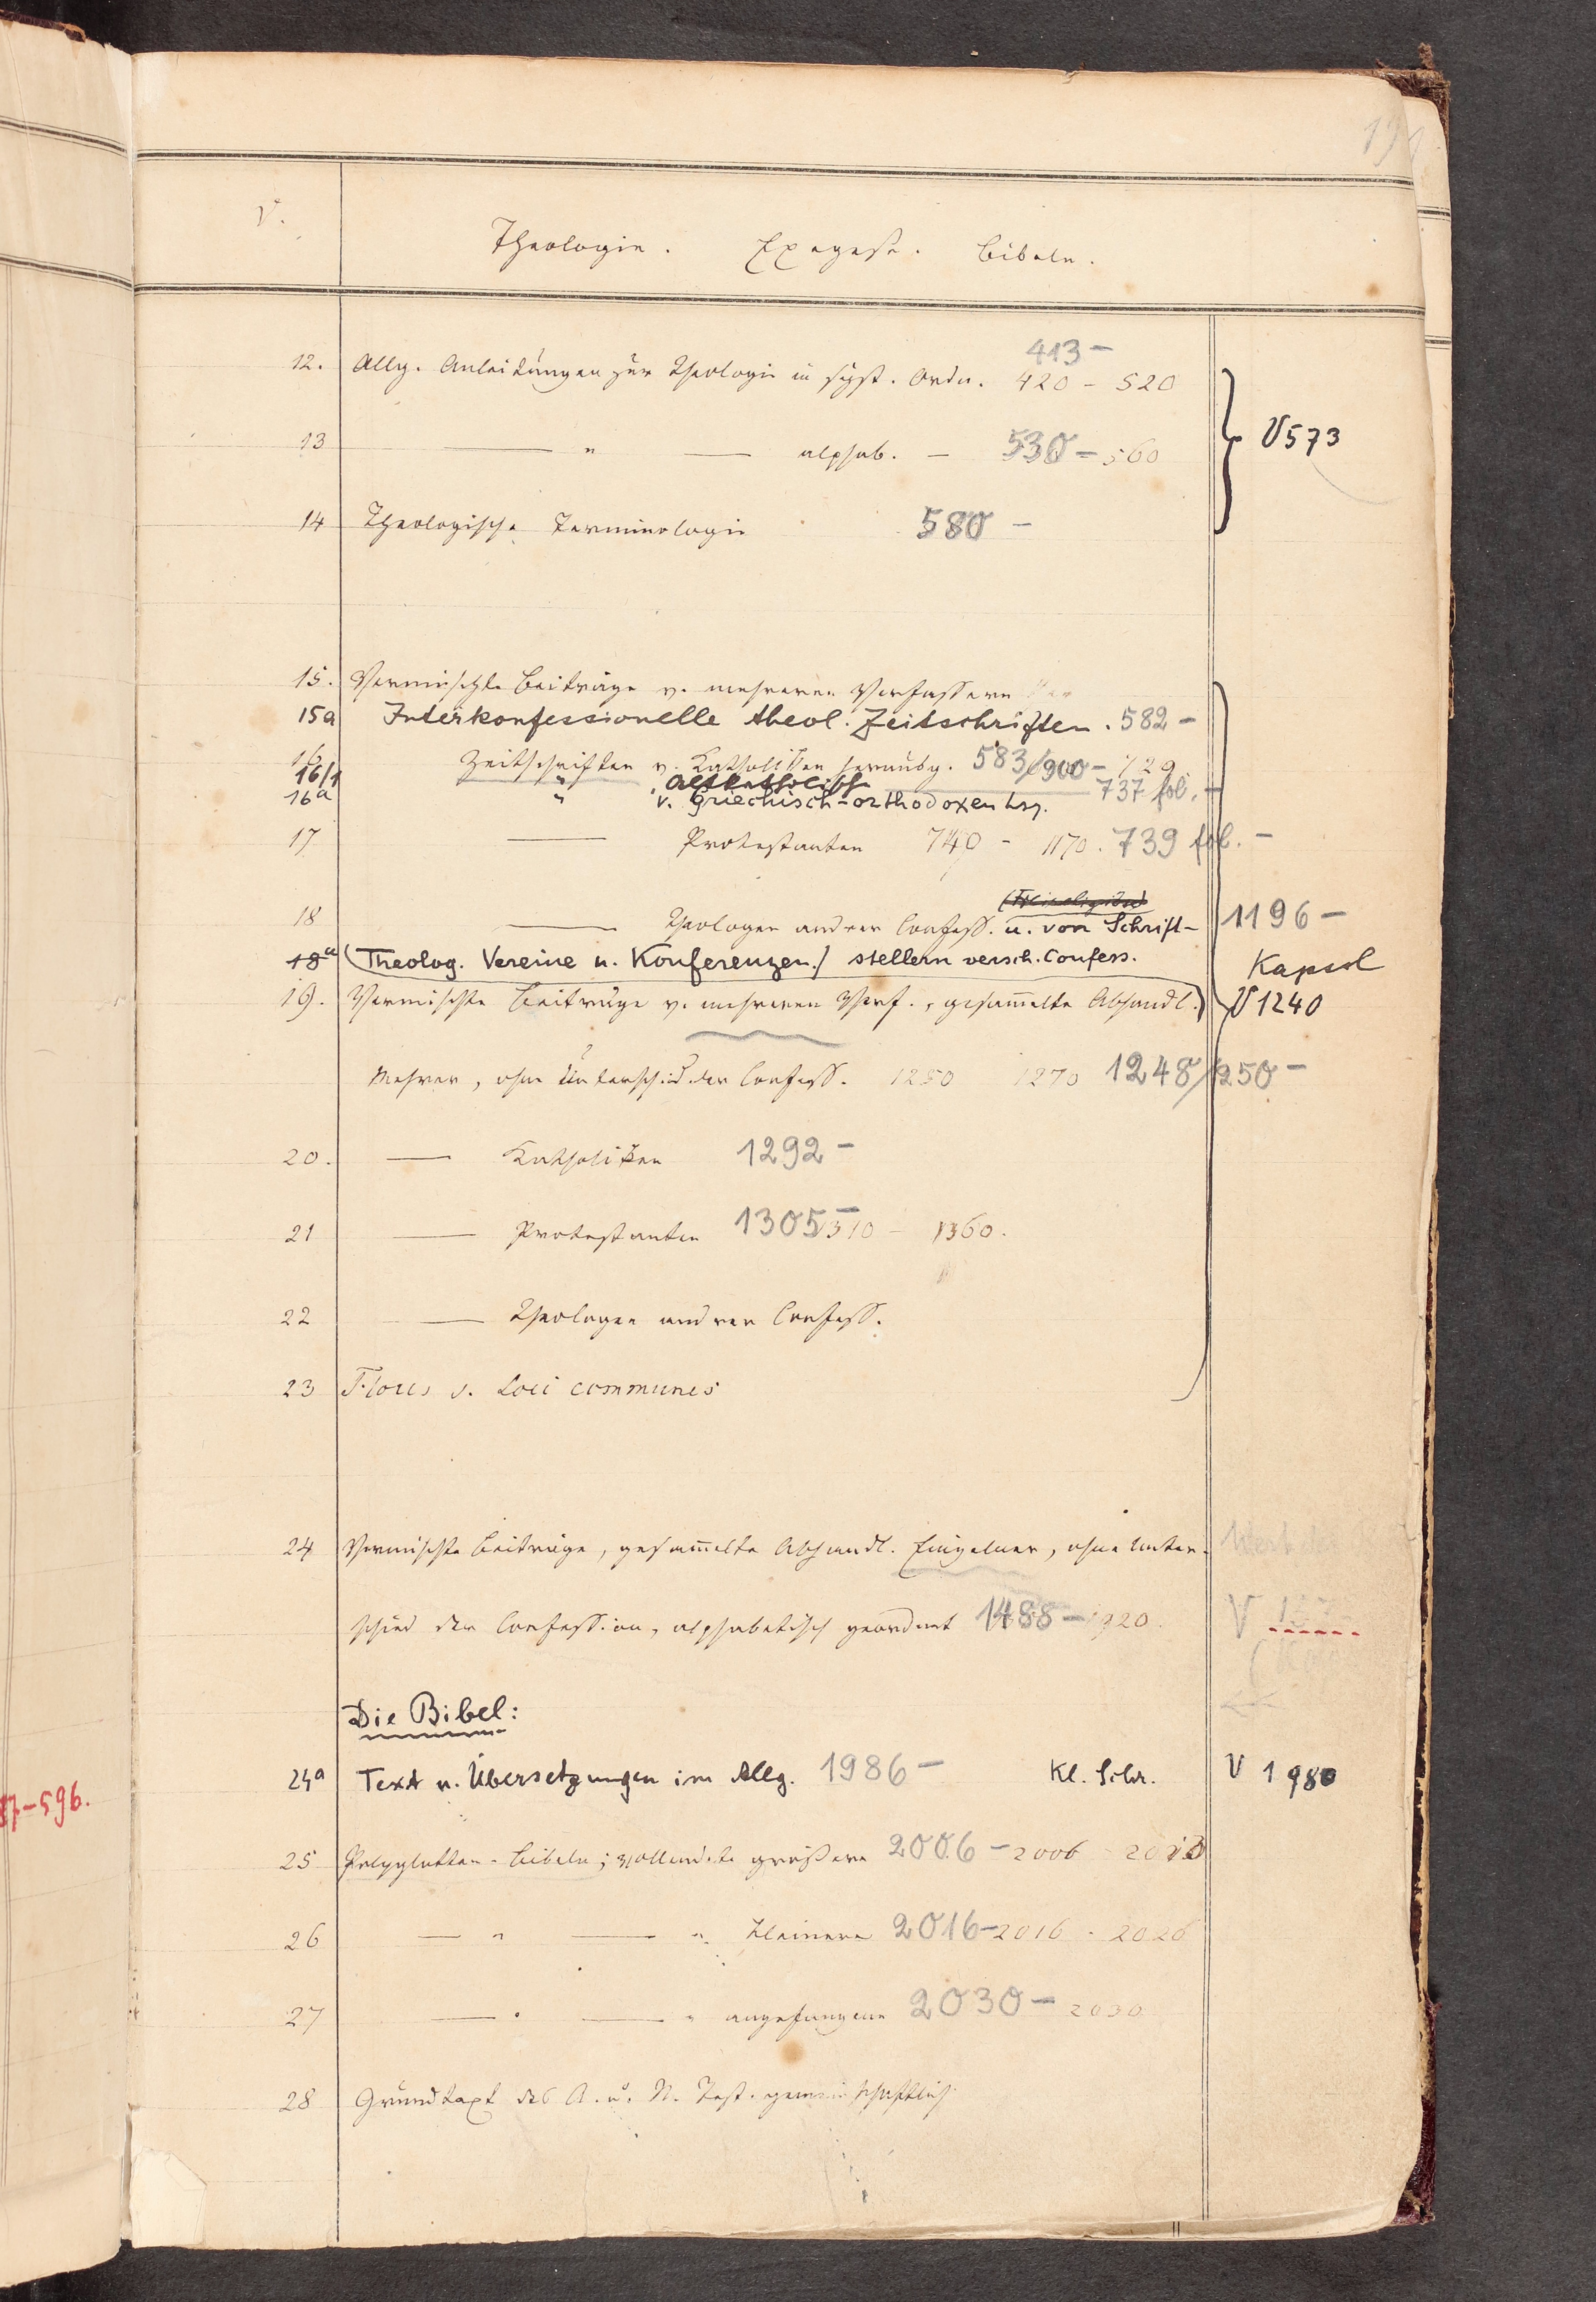 V.
Theologie. Exegese. Bibeln.
413 –
12. Allg. Anleitungen zur Theologie in syst. Ordn. 420 – 520
V 573
13 — " — alphab. — 530 – 560
14 Theologische Terminologie 580 –
15. Vermischte Beiträge v. mehreren Verfassern
15a Interkonfessionelle theol. Zeitschriften. 582 –
16 Zeitschriften v. Katholiken herausg. 583/900 – 729
16/1 " Altkatholisch 737 fol. –
16a " v. Griechisch-orthodoxen hsg.
17 — Protestanten 740 – 1170. 739 fol. –
18 — Theologen andrer Confess. u. von Schrift- 1196 –
18a (Theolog. Vereine u. Konferenzen) stellern versch. Confess. Kapsel
19. Vermischte Beiträge v. mehreren Verf., gesam̅elte Abhandl.) V 1240
Mehrer, ohne Unterschied der Confess. 1250 1270 1248/1250 –
20. — Katholiken 1292 –
21 — Protestanten 1305 – 1310 – 1360.
22 — Theologen andrer Confess.
23 Flores s. Loci communes
24 Vermischte Beiträge, gesam̅elte Abhandl. Einzelner, ohne Unter-
schied der Confession, alphabetisch geordnet 1488 – 1920. V
Die Bibel:
24a Text u. Übersetzungen im Allg. 1986 – Kl. Schr. V 1980
37–596.
25 Polyglotten-Bibeln; vollendete größere 2006 – 2006 – 2013
26 — " — " kleinere 2016 – 2016 – 2026
27 — " — " angefangene 2030 – 2030
28 Grundtext des A. u. N. Test. gemeinschaftlich